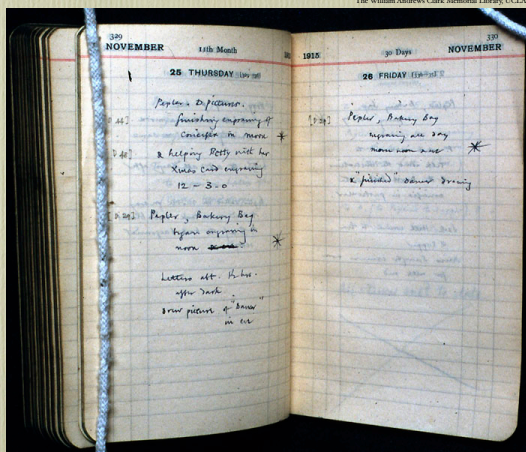 The William Andrews Clark Memorial Library, UCLA
329
NOVEMBER 11th Month
25 THURSDAY
Pepler. D pictures.
finishing engraving of
Crucifix in morn
& helping Betty with her
Xmas Card engraving
12 – 3-0
Pepler, Bakery Bag
began engraving in
noon
Letters abt. ½ hr.
after dark
Drew picture of "Dancer"
in eve
1915 30 Days 330
NOVEMBER
26 FRIDAY
Pepler, Bakery Bag
engraving all day
morn noon and
& "finished" Dancer drawing